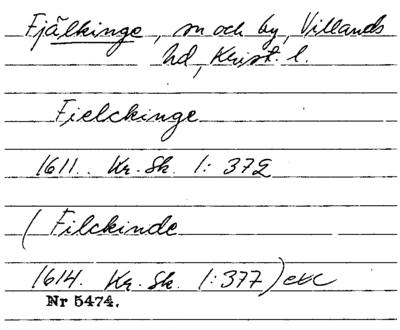 Fjälkinge, sn och by, Villands
hd, Krist. l.
Fielckinge
1611. Kr. Sk. 1: 372
(Filckinde
1614. Kr. Sk. 1:377) etc
Nr 5474.